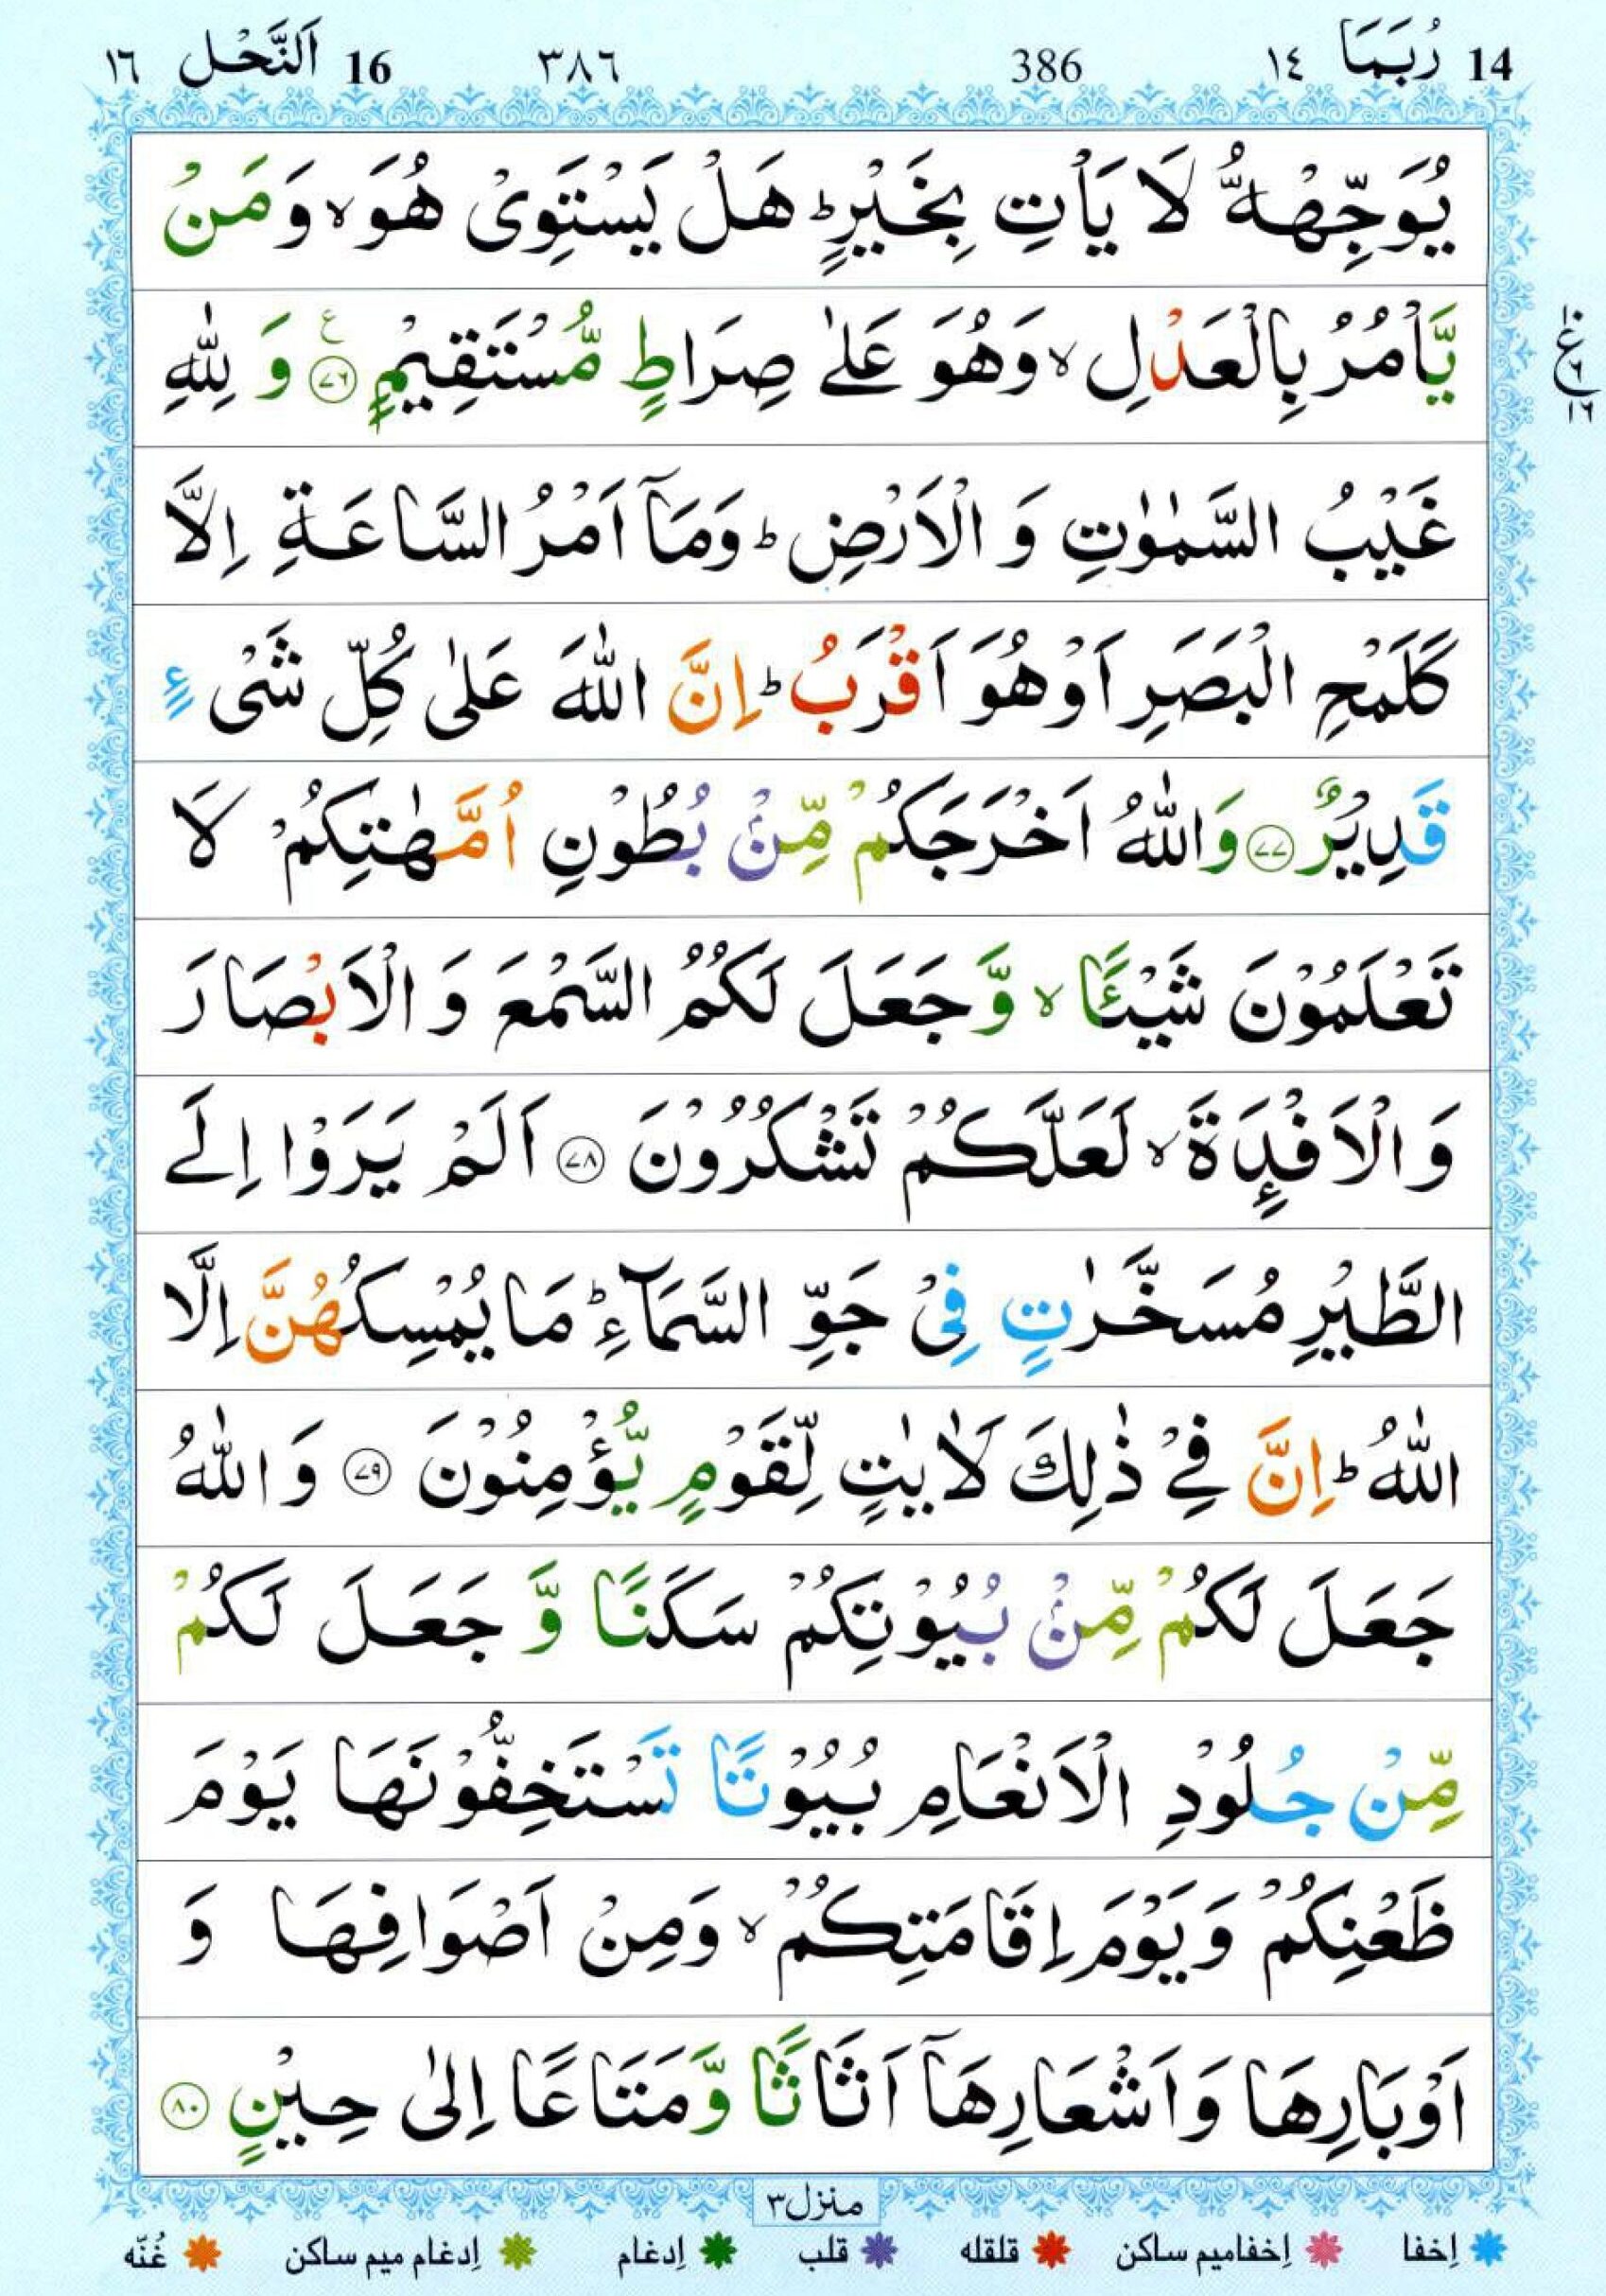 14 رُبَمَا ١٤ 386 ٣٨٦ 16 اَلنَّحْل ١٦
يُوَجِّهْهُّ لَا يَاْتِ بِخَيْرٍ ؕ هَلْ يَسْتَوِيْ هُوَ ۙ وَ مَنْ
يَّاْمُرُ بِالْعَدْلِ ۙ وَهُوَ عَلٰى صِرَاطٍ مُّسْتَقِيْمٍ ﴿٧٦﴾ ع وَ لِلّٰهِ
١٠ ع ٦ ١٦
غَيْبُ السَّمٰوٰتِ وَ الْاَرْضِ ؕ وَمَاۤ اَمْرُ السَّاعَةِ اِلَّا
كَلَمْحِ الْبَصَرِ اَوْ هُوَ اَقْرَبُ ؕ اِنَّ اللّٰهَ عَلٰى كُلِّ شَیْءٍ
قَدِيْرٌ ﴿٧٧﴾ وَاللّٰهُ اَخْرَجَكُمْ مِّنْۢ بُطُوْنِ اُمَّهٰتِكُمْ لَا
تَعْلَمُوْنَ شَيْـًٔا ۙ وَّ جَعَلَ لَكُمُ السَّمْعَ وَ الْاَبْصَارَ
وَ الْاَفْـِٕدَةَ ۙ لَعَلَّكُمْ تَشْكُرُوْنَ ﴿٧٨﴾ اَلَمْ يَرَوْا اِلَى
الطَّيْرِ مُسَخَّرٰتٍ فِيْ جَوِّ السَّمَآءِ ؕ مَا يُمْسِكُهُنَّ اِلَّا
اللّٰهُ ؕ اِنَّ فِيْ ذٰلِكَ لَاٰيٰتٍ لِّقَوْمٍ يُّؤْمِنُوْنَ ﴿٧٩﴾ وَ اللّٰهُ
جَعَلَ لَكُمْ مِّنْۢ بُيُوْتِكُمْ سَكَنًا وَّ جَعَلَ لَكُمْ
مِّنْ جُلُوْدِ الْاَنْعَامِ بُيُوْتًا تَسْتَخِفُّوْنَهَا يَوْمَ
ظَعْنِكُمْ وَ يَوْمَ اِقَامَتِكُمْ ۙ وَمِنْ اَصْوَافِهَا وَ
اَوْبَارِهَا وَ اَشْعَارِهَاۤ اَثَاثًا وَّ مَتَاعًا اِلٰى حِيْنٍ ﴿٨٠﴾
منزل ٣
إخفا إخفامیم ساکن قلقله قلب إدغام إدغام میم ساکن غُنّه